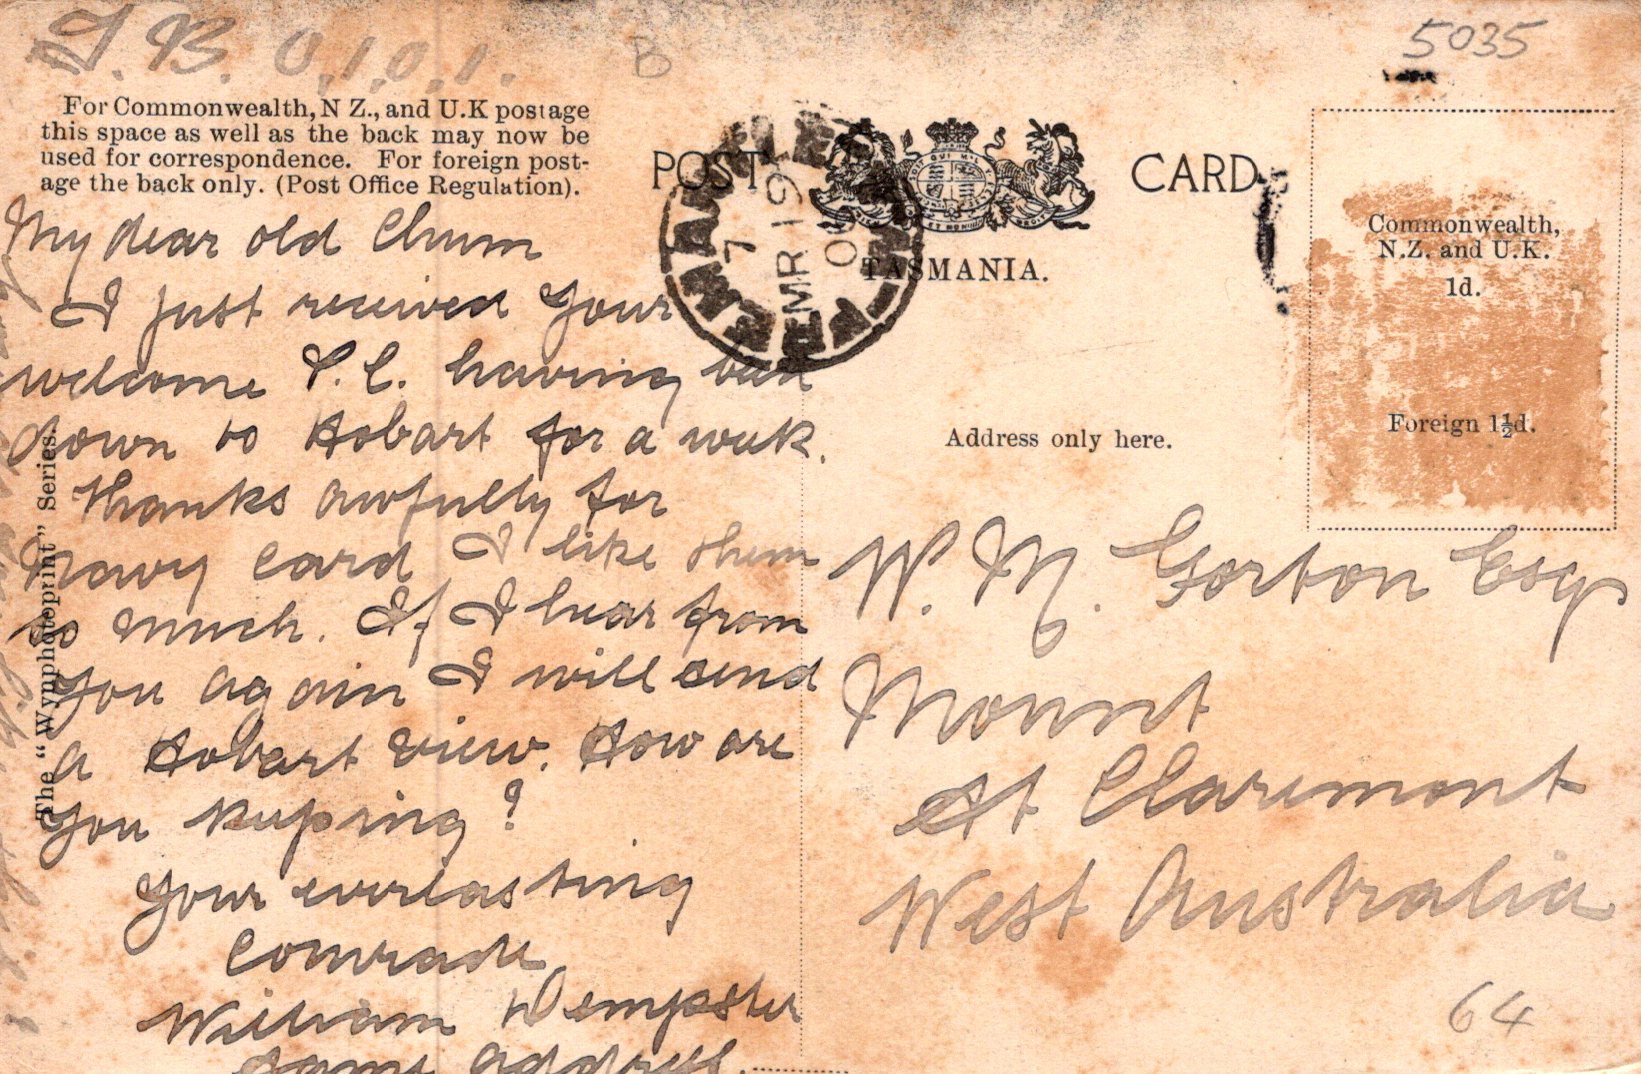 T.B. 0.1.0.1.
B
5035
For Commonwealth, N Z., and U.K postage
this space as well as the back may now be
used for correspondence. For foreign post-
age the back only. (Post Office Regulation).
POST CARD
TASMANIA.
7
MR 19
Commonwealth,
N.Z. and U.K.
1d.
Foreign 1½d.
Address only here.
The "Wynphotoprint" Series.
My dear old Chum
I just received your
welcome P.C. having been
down to Hobart for a week.
Thanks awfully for
navy card I like them
so much. If I hear from
you again I will send
a Hobart view. How are
you keeping?
Your everlasting
comrade
William Dempster
same address.
W. M. Gorton Esq
Mount
St Claremont
West Australia
64